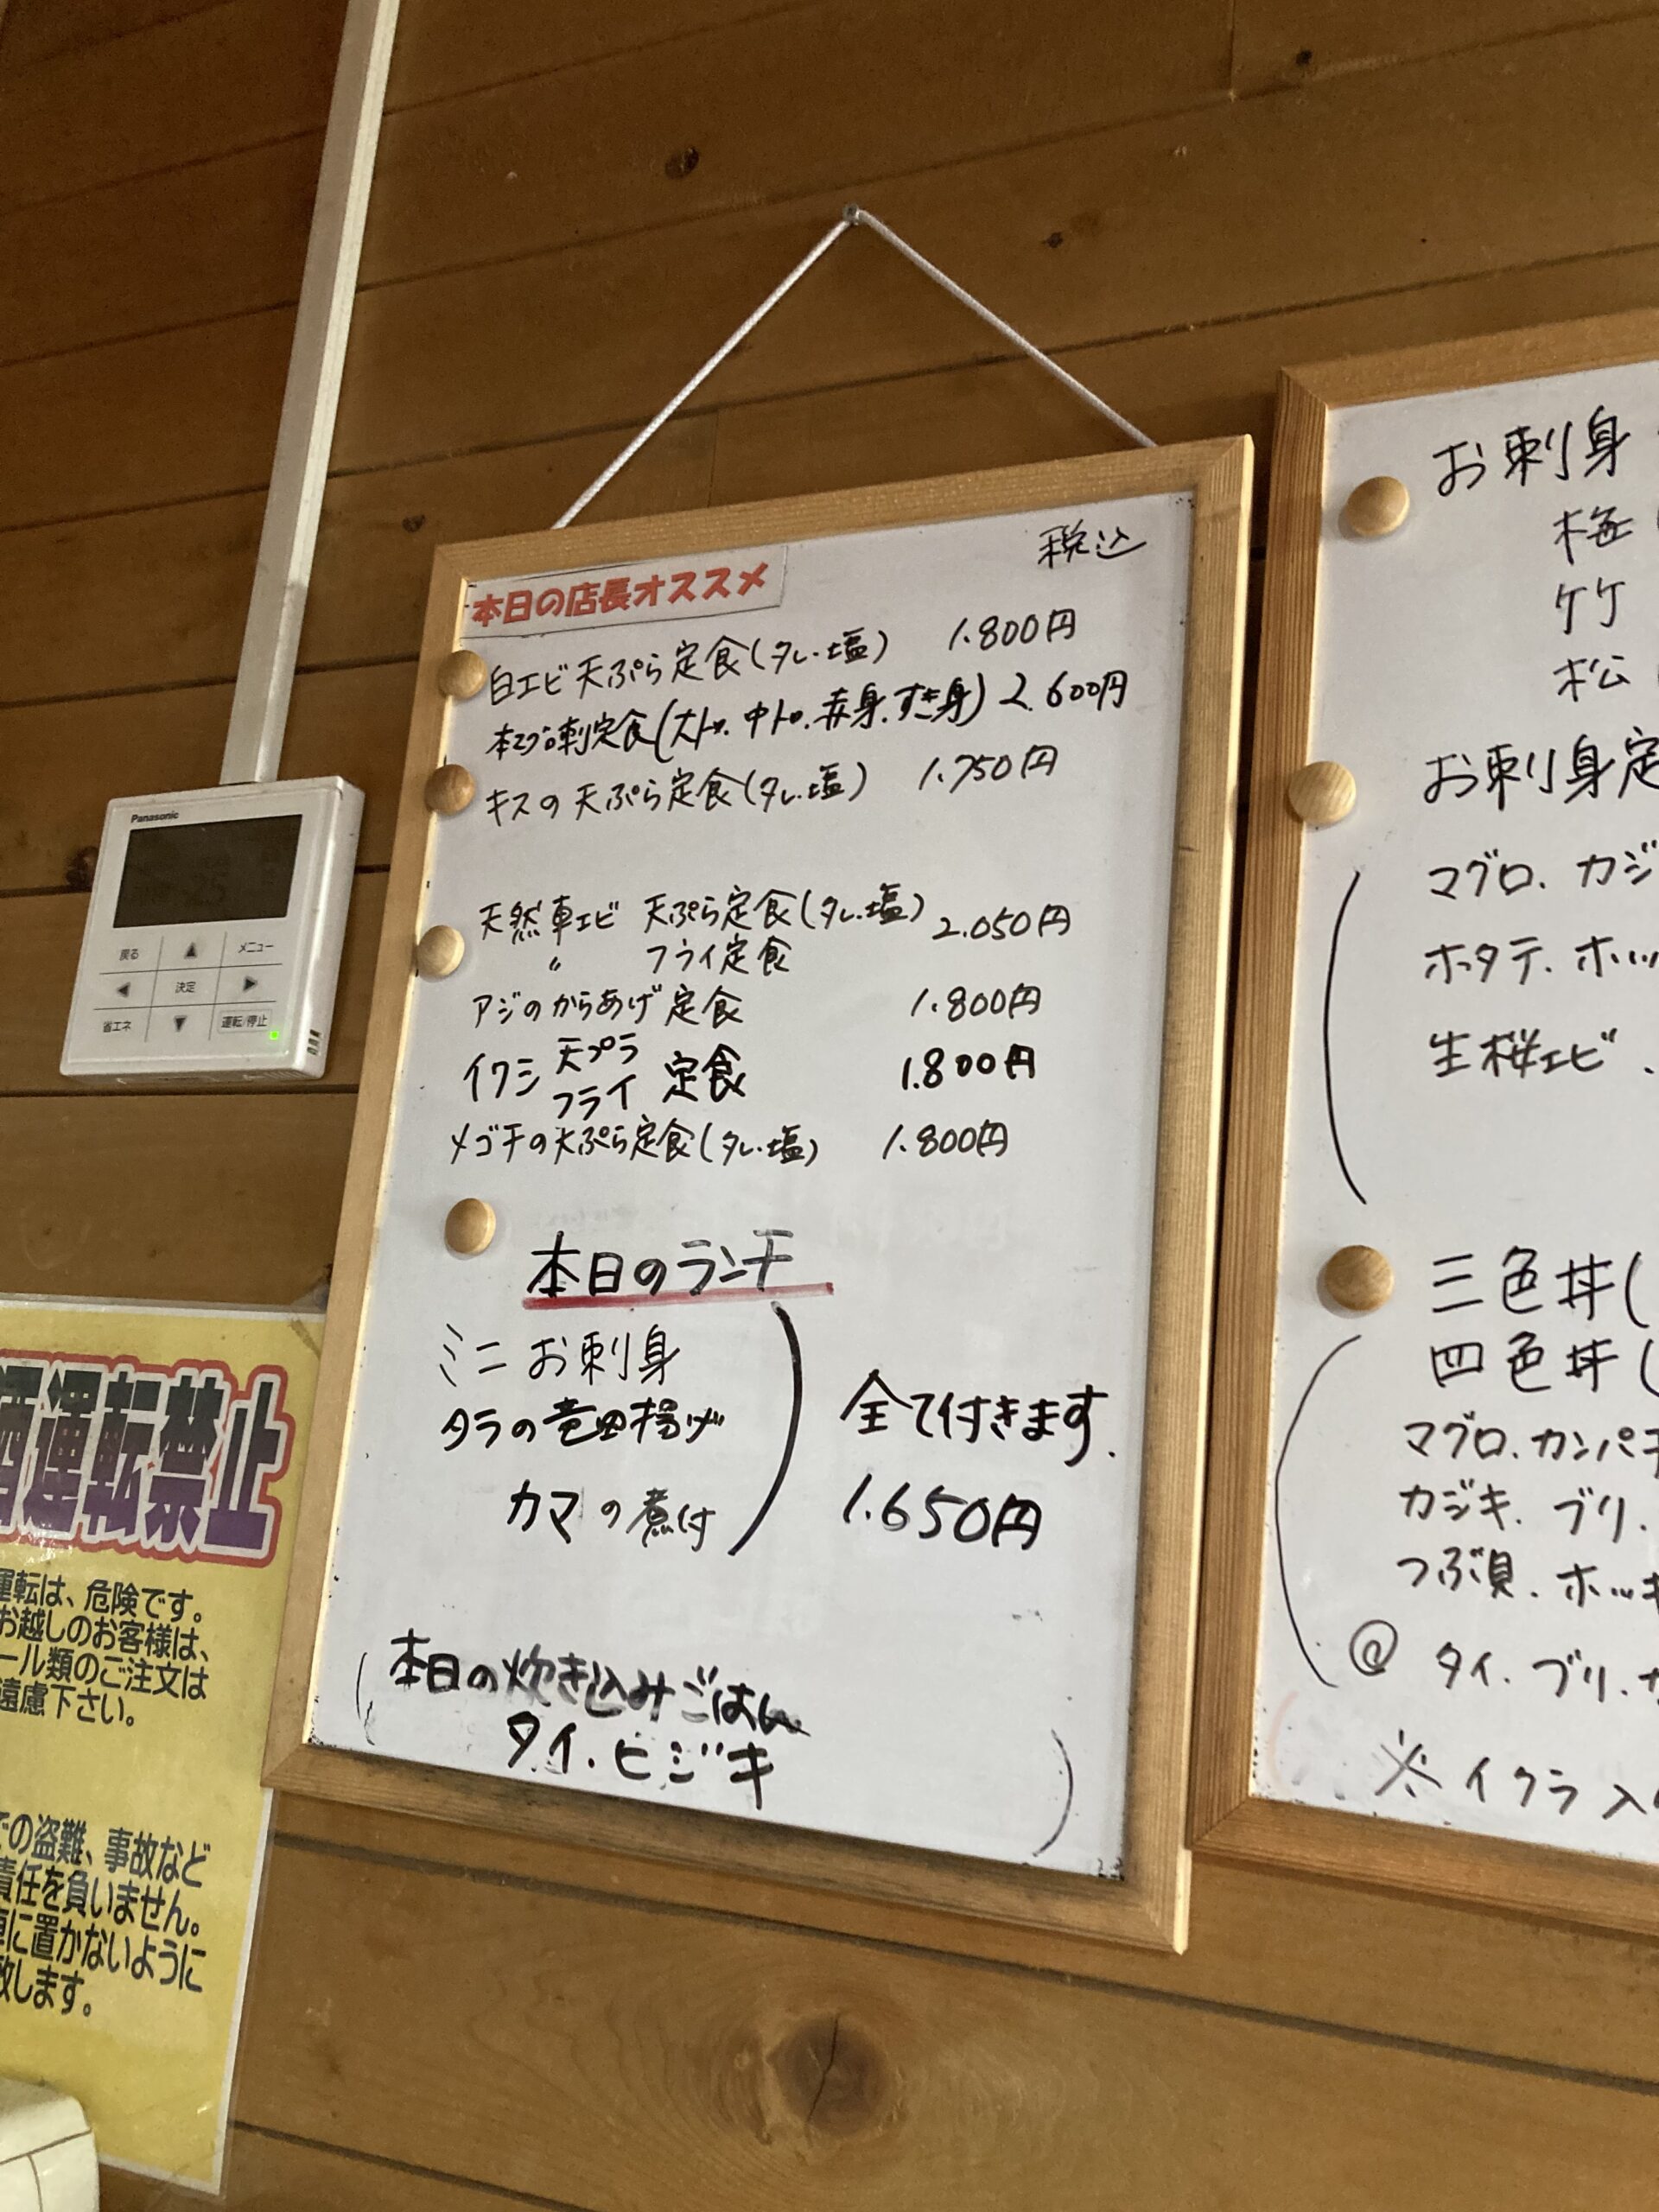 税込
本日の店長オススメ
白エビ天ぷら定食(タレ・塩) 1.800円
本マグロ刺定食(大トロ、中トロ、赤身、すき身) 2.600円
キスの天ぷら定食(タレ・塩) 1.750円
天然車エビ 天ぷら定食(タレ・塩) 2.050円
〃 フライ定食
アジのからあげ定食 1.800円
イワシ 天プラ フライ 定食 1.800円
メゴチの天ぷら定食(タレ・塩) 1.800円
本日のランチ
ミニお刺身
タラの竜田揚げ
カマの煮付
全て付きます.
1.650円
本日の炊き込みごはん
タイ、ヒジキ
お刺身
梅
竹
松
お刺身定
マグロ、カジ
ホタテ、ホッ
生桜エビ、
三色丼(
四色丼(
マグロ、カンパチ
カジキ、ブリ、
つぶ貝、ホッキ
@ タイ、ブリ、カ
※イクラ入
Panasonic
戻る ▲ メニュー
◀ 決定 ▶
省エネ ▼ 運転/停止
酒運転禁止
運転は、危険です。
お越しのお客様は、
ール類のご注文は
遠慮下さい。
での盗難、事故など
責任を負いません。
車に置かないように
致します。